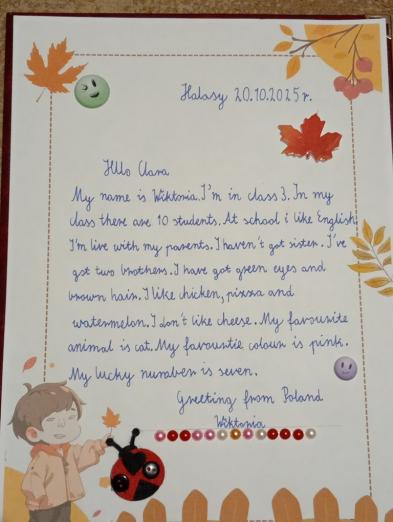 Halasy 20.10.2025r.
Hllo Clara
My name is Wiktoria. I'm in class 3. In my
class there are 10 students. At school i like English
I'm live with my parents. I haven't got sister. I've
got two brothers. I have got green eyes and
brown hair. I like chicken, pizza and
watermelon. I don't like cheese. My favourite
animal is cat. My favourtie colour is pink.
My lucky number is seven.
Greeting from Poland
Wiktoria